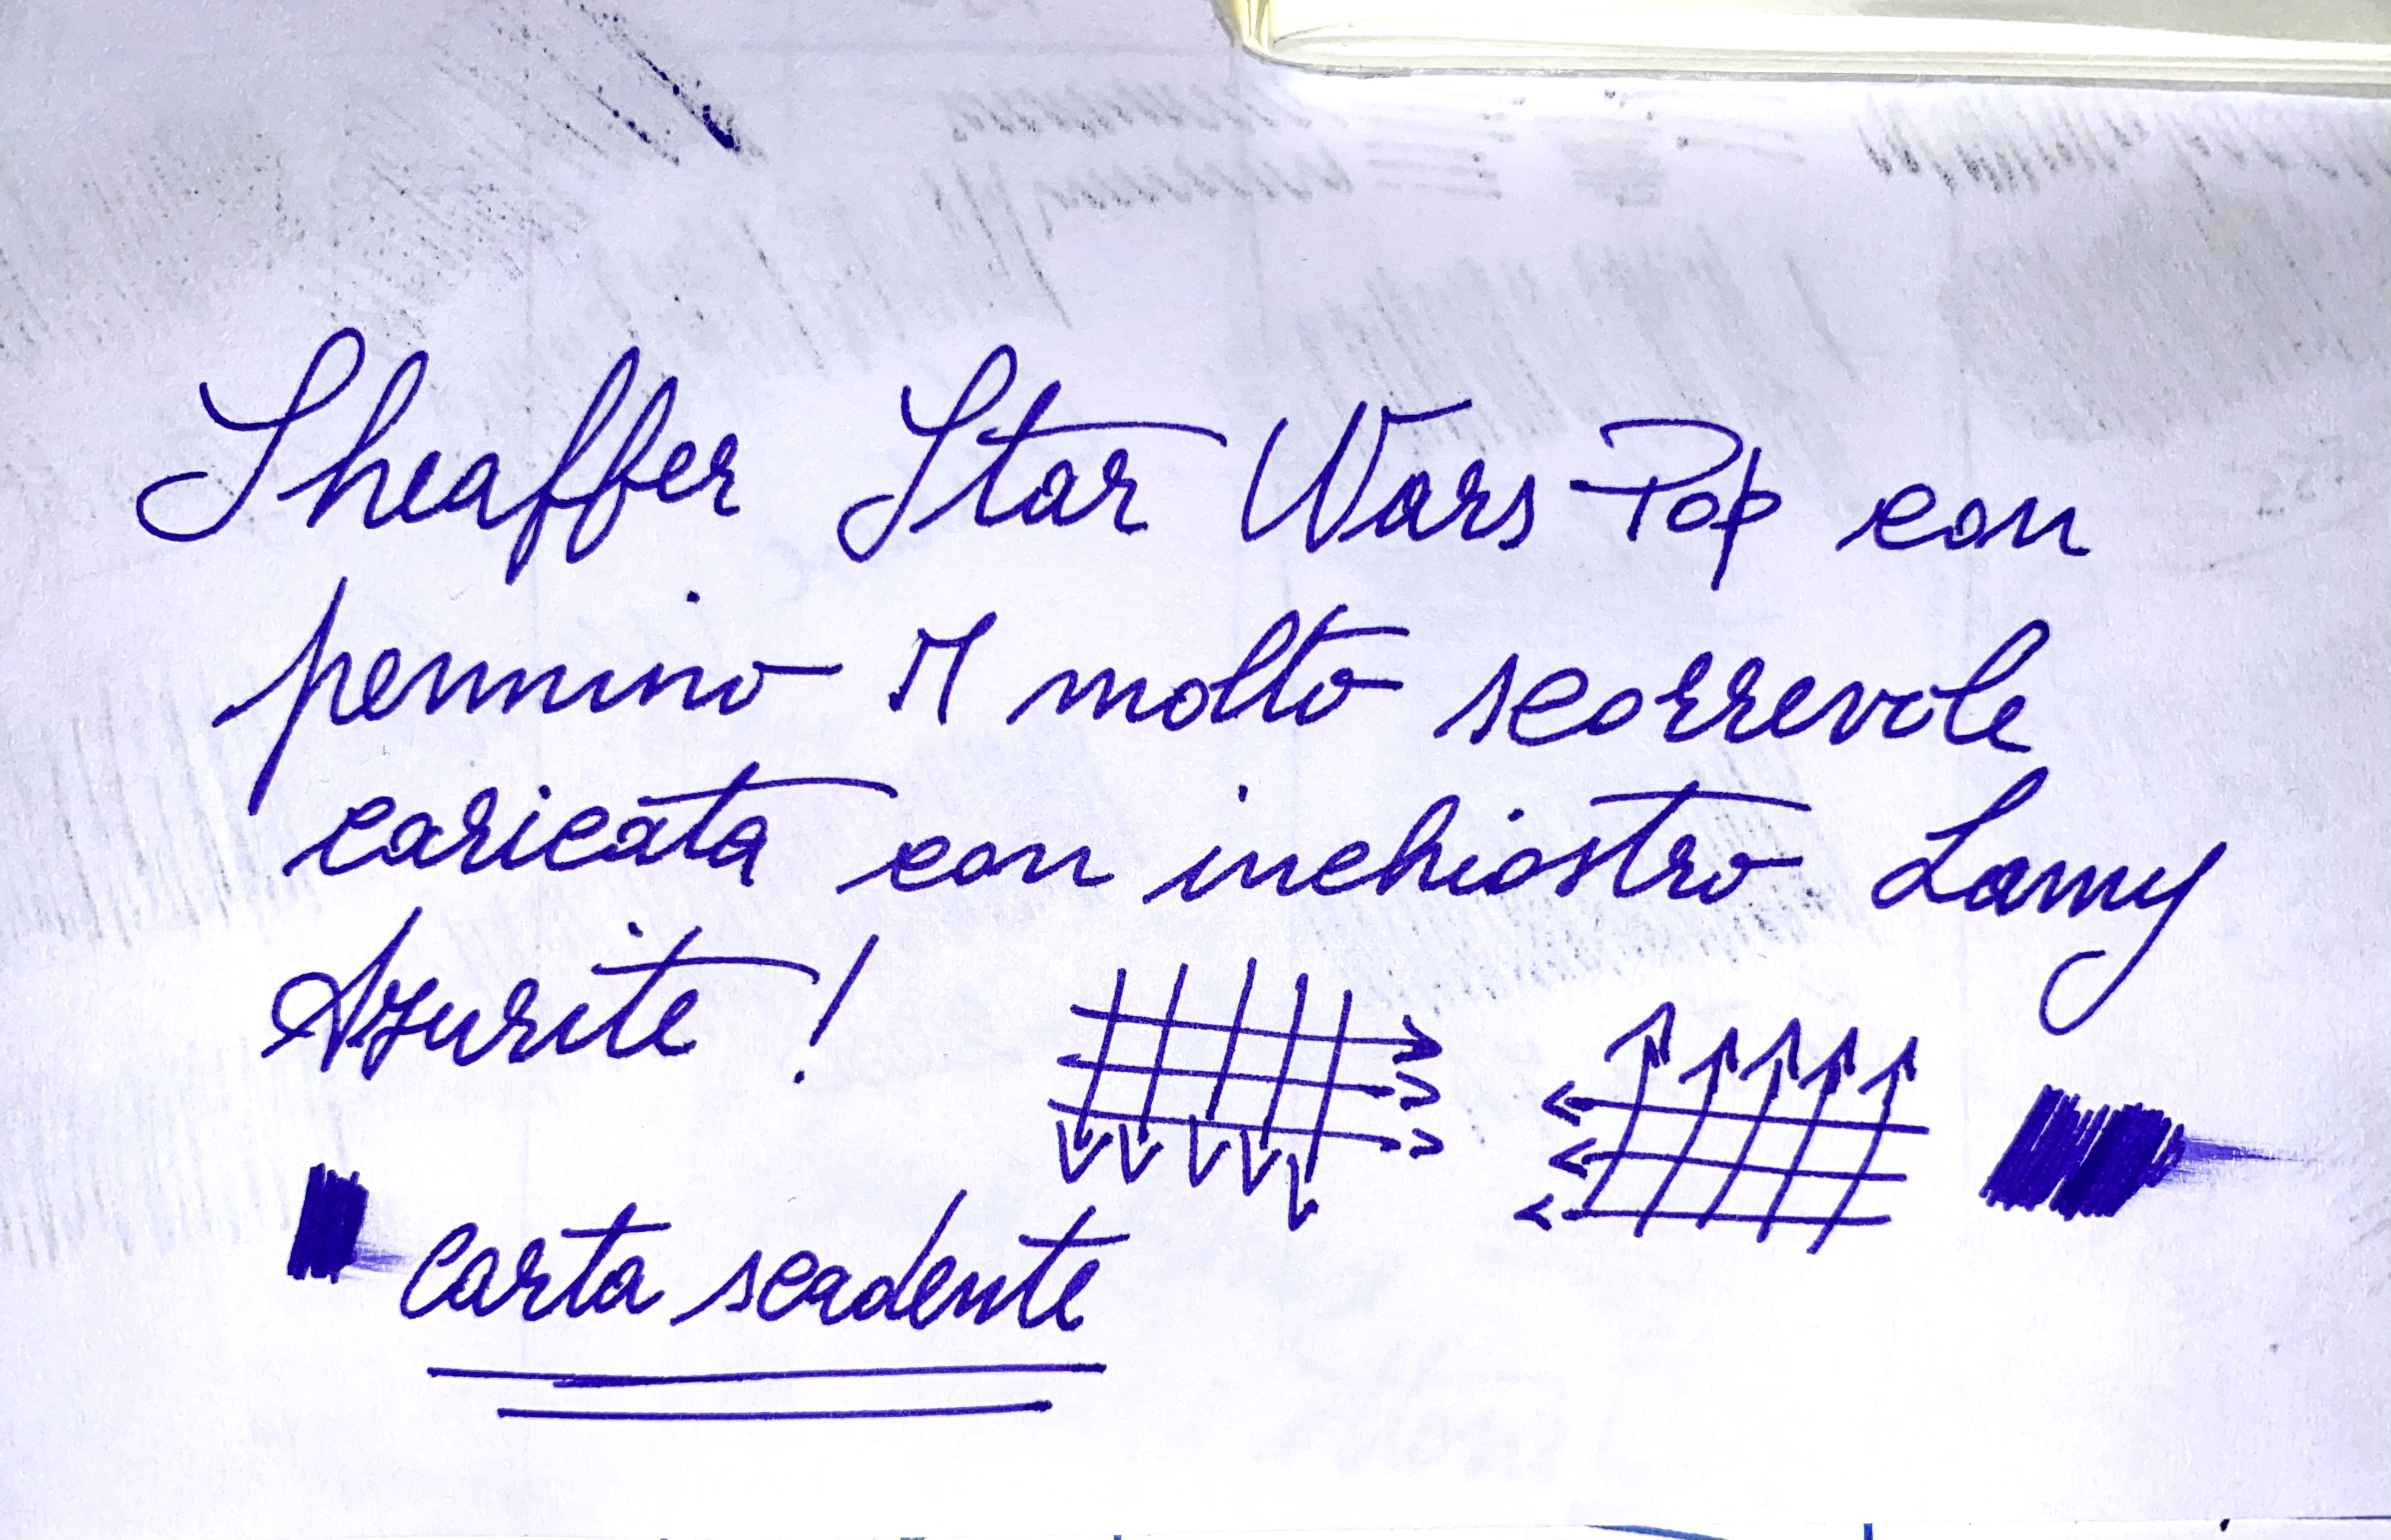 Sheaffer Star Wars Pop con
pennino M molto scorrevole
caricata con inchiostro Lamy
Azurite!
carta scadente